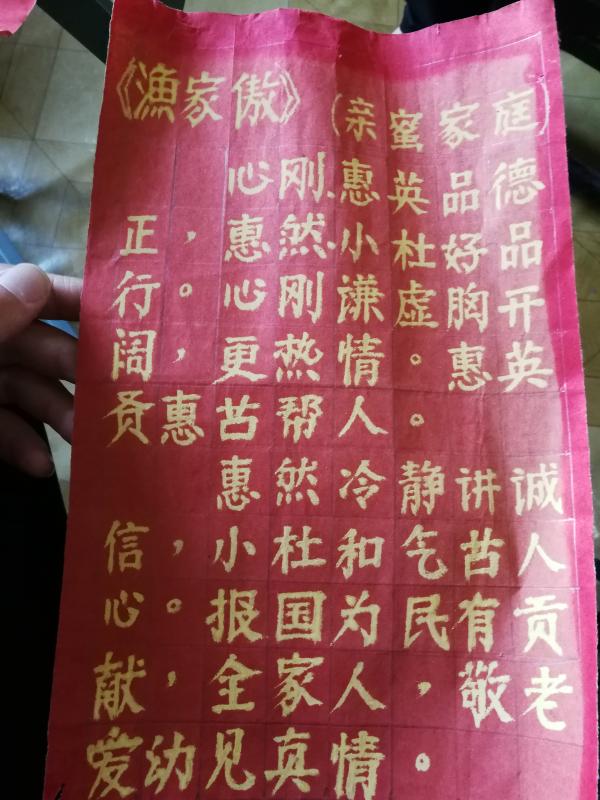 《渔家傲》(亲蜜家庭)
心刚惠英品德
正,惠然小杜好品
行。心刚谦虚胸开
阔,更热情。惠英
贤惠苦帮人。
惠然冷静讲诚
信,小杜和气苦人
心。报国为民有贡
献,全家人,敬老
爱幼见真情。